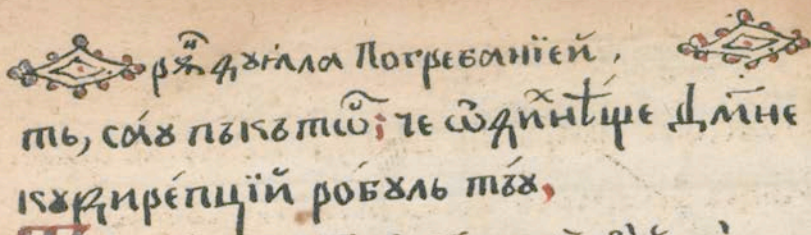 рѫ҃дꙋѧла Погребанїей .
ть, саꙋ пъкътѡ҃; че ѡдиⷯнѣще Дм҃не
кꙋдире́пцїй ро́бꙋль тъ́ꙋ,